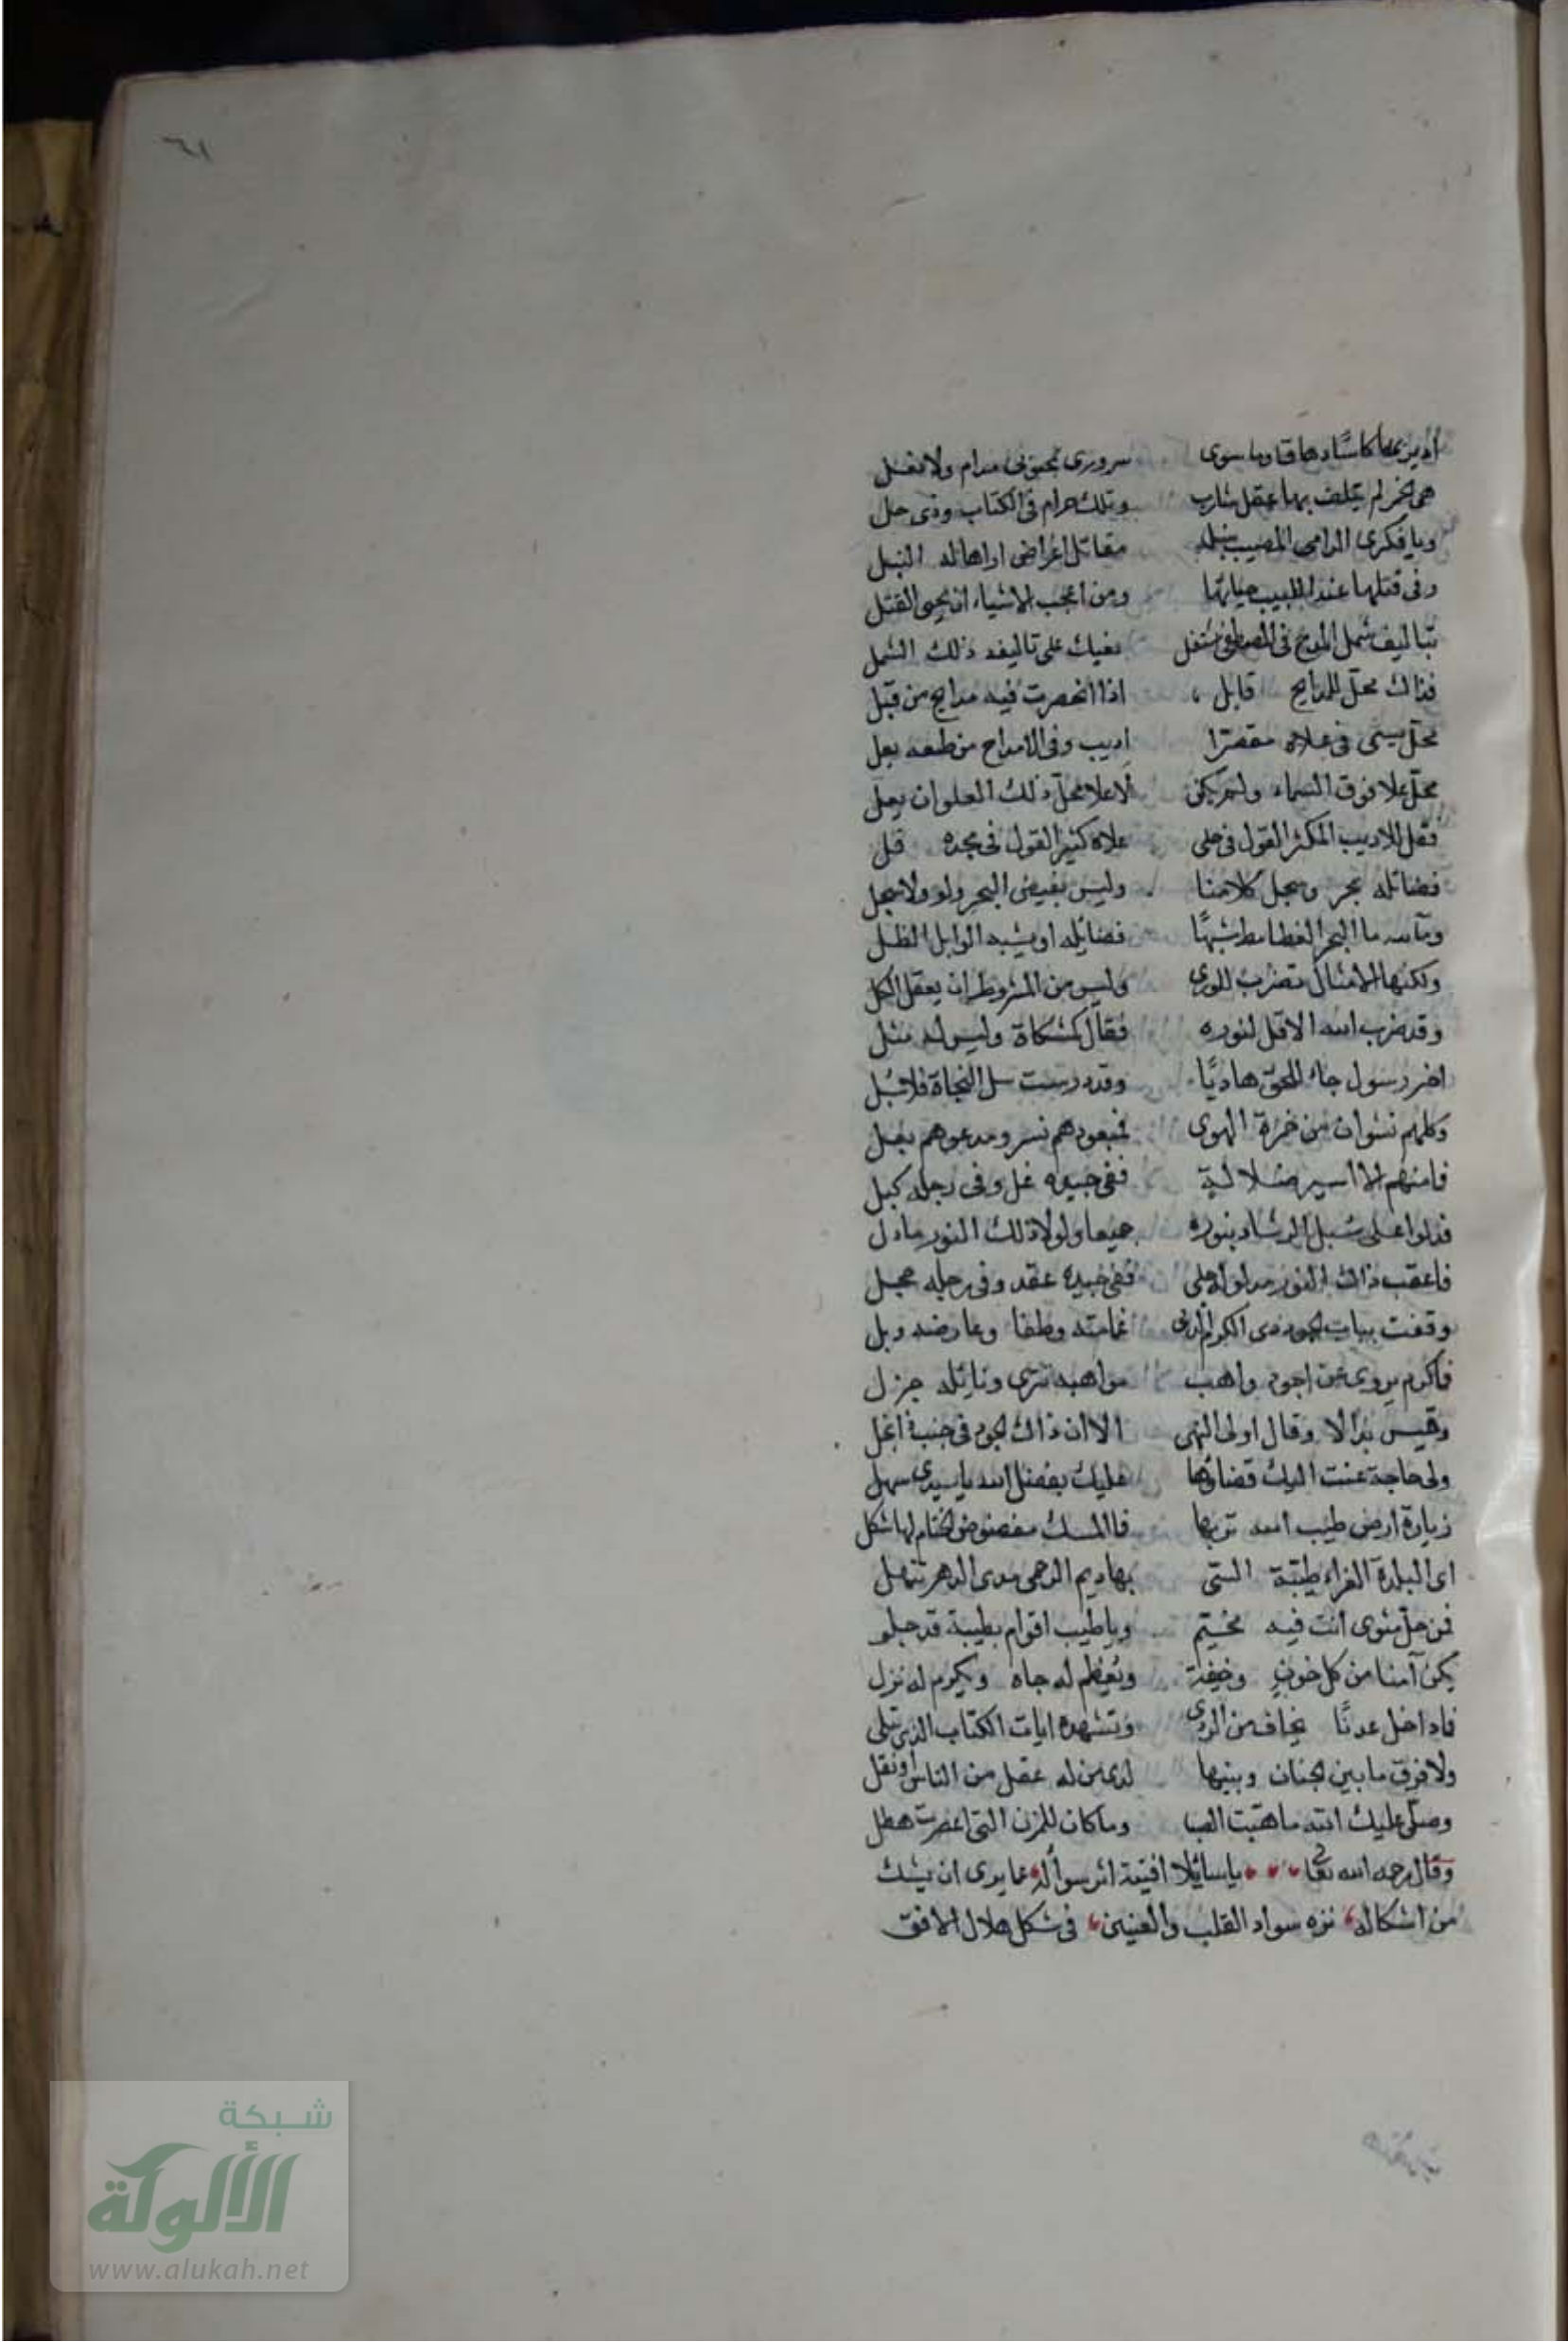 ٦١
اديريها كاسًا دهاقا وما سوى سرورى مدام ولا نقل
هى الخمر لم يتلف بها عقل شارب وتلك حرام فى الكتاب وذى حل
ويا فكرى الرامى المصيب بنبله مقاتل اغراض اراها له النبل
وفى قتلها عند اللبيب حياتها ومن اعجب الاشياء ان يحيى القتل
بتاليف شمل المدح فى المصطفى اشتغل يعينك على تاليفه ذلك الشمل
فذاك محل للمدايح قابل اذا انحصرت فيه مدايح من قبل
محل يسمى فى علاه مقصرا اديب وفى الامداح من طبعه يعل
محل علا فوق السماء ولم يكن لاعلا محل ذلك العلو ان يعل
فقل للاديب المكثر القول فى حلى علاه كثير القول فى مجده قل
فضائله بحر وسجل كلامنا وليس يغيض البحر ولو ولا سجل
وتالله ما البحر الغطامط مشبهًا فضايله او يشبه الوابل الطل
ولكنها الامثال تضرب للورى وليس من المشروط ان يعقل الكل
وقد ضرب الله الاقل لنوره فقال كمشكاة وليس له مثل
اخر رسول جاء للحق هاديًا وقد درست سبل النجاة فلا سبل
وكلهم نشوان من خمرة الهوى فمعبودهم نسر ومدعوهم بعل
فما منهم الا اسير ضلالة ففى جيده غل وفى رجله كبل
فدلوا على سبل الرشاد بنوره جميعا ولولا ذلك النور ما دل
فاعقب ذاك النور مدلوله حلى ففى جيده عقد وفى رجله حجل
وقفت بباب الجود ذى الكرم الذى غمامته وطفا وعارضه وبل
فاكرم بروى عن اجود واهب مواهبه تترى ونائله جزل
وقيس ندا لا وقال اولى النهى الا ان ذاك الجود فى جنبه البخل
ولى حاجة عنت اليك قضاؤها عليك بفضل الله يا سيدى سهل
زيارة ارض طيب الله تربها فما المسك مفضوض الختام لها شكل
اى البلدة الغراء طيبة التى بها ديم الرحمى مدى الدهر تنهل
فمن حل مثوى انت فيه مخيم ويا طيب اقوام بطيبة قد حلو
يكن آمنا من كل خوف وخيفة ويعظم له جاه ويكرم له نزل
فما داخل عدنًا يخاف من الردى وتشهد ايات الكتاب الذى تتلى
ولا فرق ما بين الجنان وبينها لدى من له عقل من الناس او نقل
وصلى عليك الله ما هبت الصبا وما كان للمزن التى اعصرت هطل
وقال رحمه الله تعالى يا سائلا افتيته اثر سواله عما يرى ان يشك
من اشكاله نزه سواد القلب والعينين فى شكل هلال الافق
شبكة
الألوكة
www.alukah.net